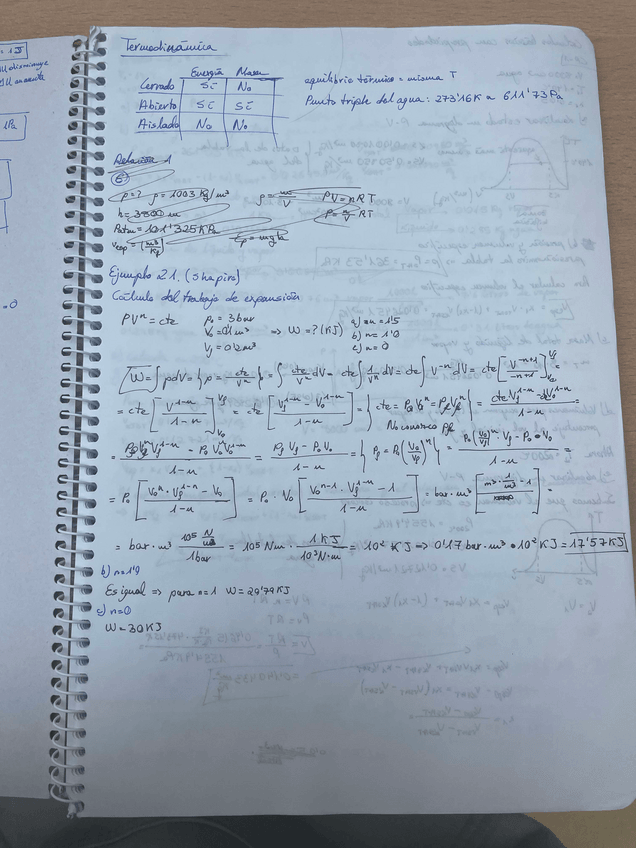 Termodinámica
Energía Masa
Cerrado Sí No
Abierto Sí Sí
Aislado No No
equilibrio térmico = misma T
Punto triple del agua: 273'16K a 611'73Pa
Relación 1
6
ρ=? ρ=1003 Kg/m³ ρ = m/V PV=nRT
h=3800 m
Patm=101'325KPa Ep=mgh
Ejemplo 2.1. (Shapiro)
Cálculo del trabajo de expansión
PVⁿ=cte P₀=3bar
V₀=0'1m³ ⇒ W=?(KJ)
Vf=0'2m³
a) n=1'5
b) n=1'0
c) n=0
W=∫pdV={p=cte/Vⁿ}=∫cte/Vⁿ dV=cte∫1/Vⁿ dV=cte∫V⁻ⁿ dV=cte[V⁻ⁿ⁺¹/-n+1]
=cte[V¹⁻ⁿ/1-n]=cte[Vf¹⁻ⁿ-V₀¹⁻ⁿ/1-n]={cte=P₀V₀ⁿ=PfVfⁿ}=cteVf¹⁻ⁿ-cteV₀¹⁻ⁿ/1-n=
No conozco Pf
=PfVfⁿVf¹⁻ⁿ-P₀V₀ⁿV₀¹⁻ⁿ/1-n=PfVf-P₀V₀/1-n={Pf=P₀(V₀/Vf)ⁿ}=P₀(V₀/Vf)ⁿ·Vf-P₀V₀/1-n=
=P₀[V₀ⁿ·Vf¹⁻ⁿ-V₀/1-n]=P₀·V₀[V₀ⁿ⁻¹·Vf¹⁻ⁿ-1/1-n]=bar·m³[m³·1/m³-1]=
=bar·m³ 10⁵ N/m²/1bar=10⁵Nm·1KJ/10³N·m=10² KJ⇒0'17bar·m³·10²KJ=17'57KJ
b) n=1'0
Es igual ⇒ para n=1 W=20'79KJ
c) n=0
W=30KJ